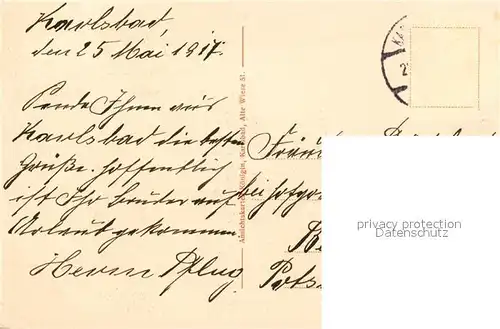 Karlsbad,
den 25 Mai 1917.
Sende Ihnen aus
Karlsbad die besten
Grüße. hoffentlich
ist Ihr bruder auf
Uhrlaub gekommen
Herm Pflug
Ansichtskarten-Königin, Karlsbad, Alte Wiese 51.
Fräul
bei hofgä
Pots
privacy protection
Datenschutz